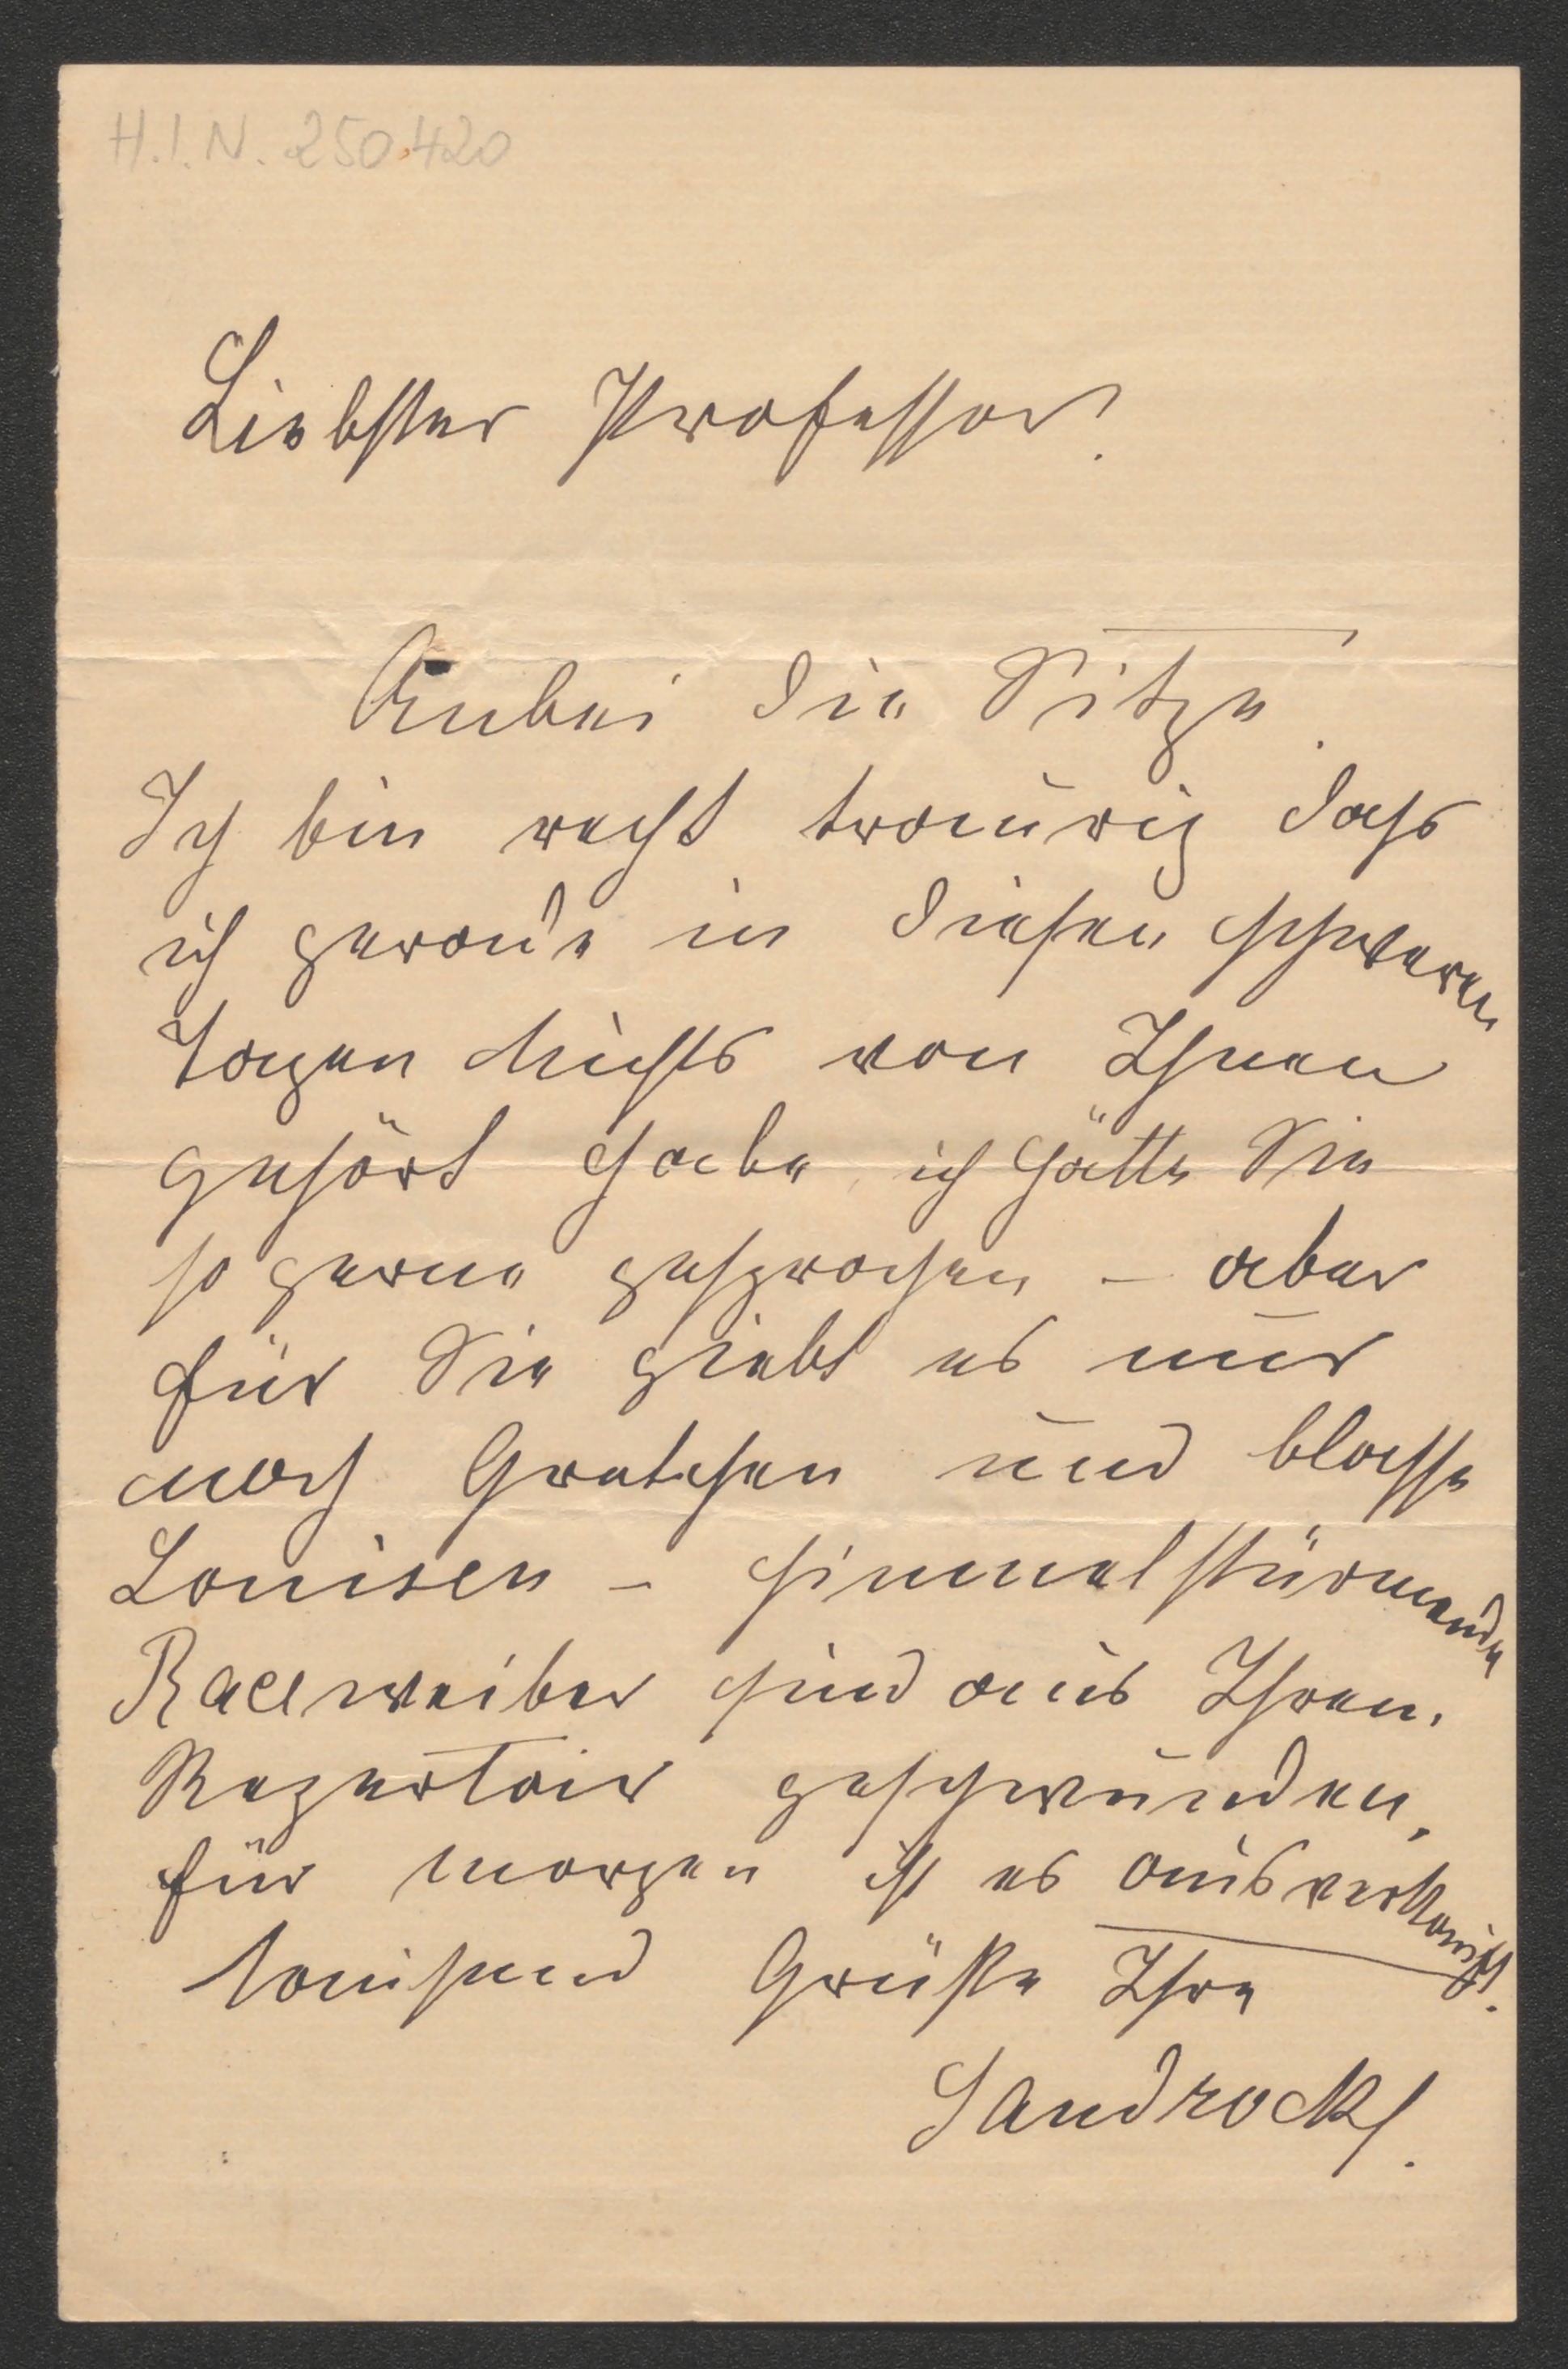 H.I.N. 250.420
Liebster Professor!
Anbei die Sitze.
Ich bin recht traurig dass
ich gerade in diesen schweren
Tagen Nichts von Ihnen
gehört habe, ich hätte Sie
so gerne gesprochen – aber
für Sie giebt es nur
noch Gretchen und blasse
Louisen – himmelstürmende
Raceweiber sind aus Ihren
Repertoir geschwunden,
für morgen ist es ausverkauft.
Tausend Grüße Ihre
Sandrock.